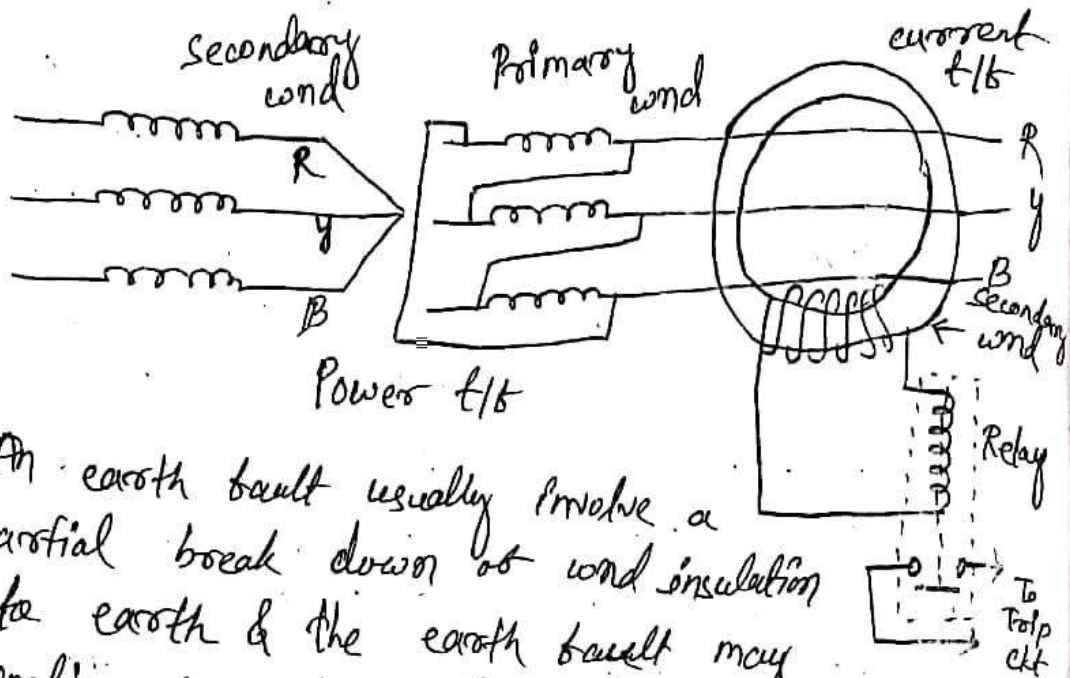 secondary
wnd
Primary
wnd
current
t/f
R
Y
B
R
Y
B
secondary
wnd
Power t/f
Relay
To
Trip
ckt
An earth fault usually involve a
artial break down of wnd insulation
to earth & the earth fault may